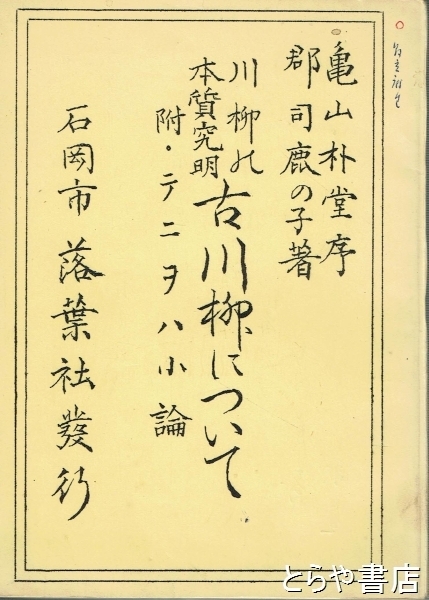 亀山朴堂序
郡司鹿の子著
川柳の
本質究明
古川柳について
附・テニヲハ小論
石岡市 落葉社發行
とらや書店